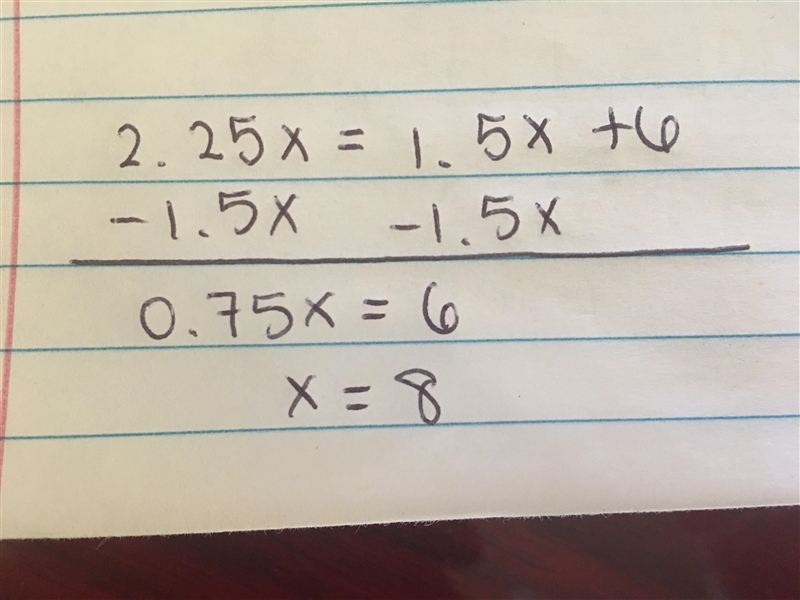 2.25x = 1.5x + 6
-1.5x -1.5x
0.75x = 6
x = 8